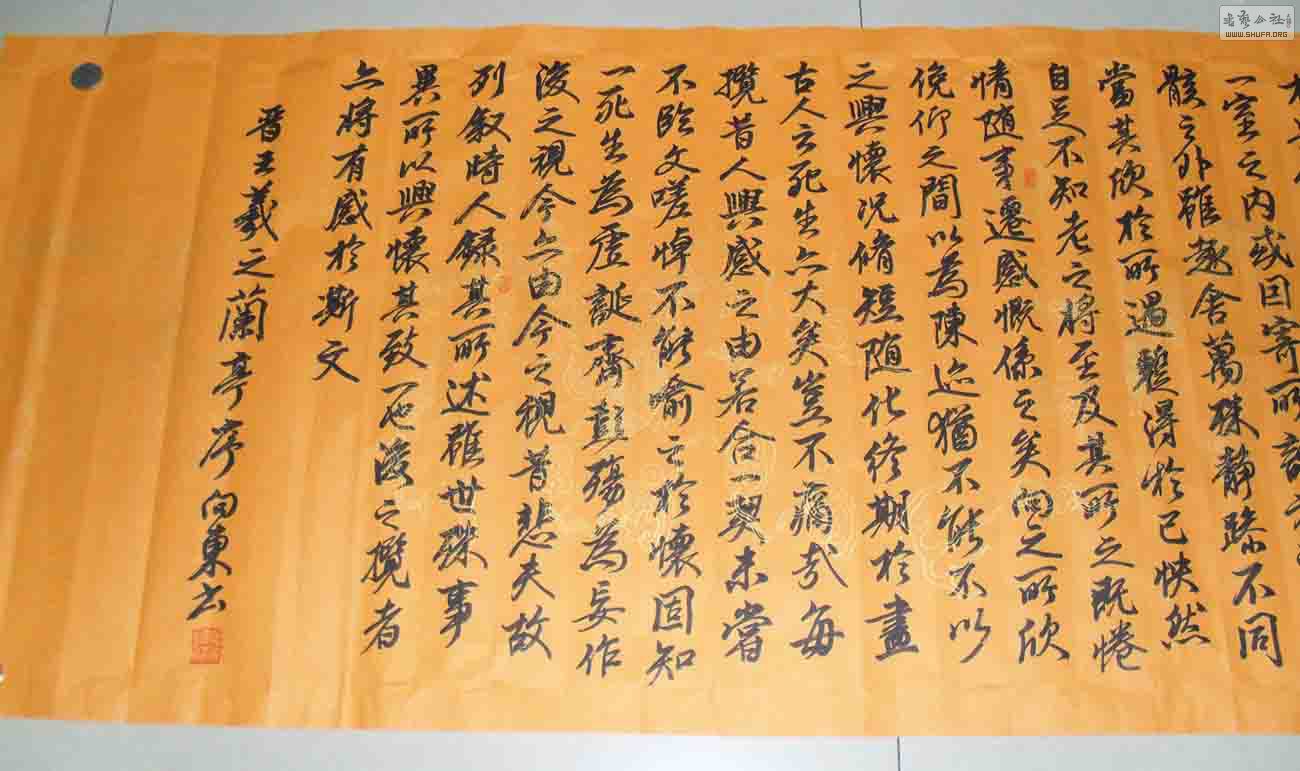 一室之内或因寄所託
骸之外雖趣舍萬殊静躁不同
當其欣於所遇蹔得於己快然
自足不知老之將至及其所之既惓
情随事遷感慨係之矣向之所欣
俛仰之間以為陳迹猶不能不以
之興懷况脩短随化終期於盡
古人云死生亦大矣豈不痛哉每
攬昔人興感之由若合一契未嘗
不臨文嗟悼不能喻之於懷固知
一死生為虚誕齊彭殤為妄作
後之視今亦由今之視昔悲夫故
列叙時人録其所述雖世殊事
異所以興懷其致一也後之攬者
亦将有感於斯文
晋王羲之蘭亭序向東书
书艺公社
WWW.SHUFA.ORG